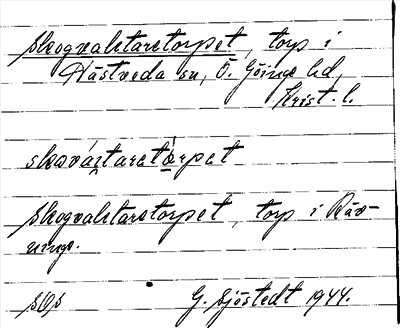 Skogvaktaretorpet, torp i
Hästveda sn, Ö. Göinge hd,
Krist. l.
skovártaretòrpet
Skogvaktaretorpet, torp i Räv-
ninge.
G. Sjöstedt 1944.